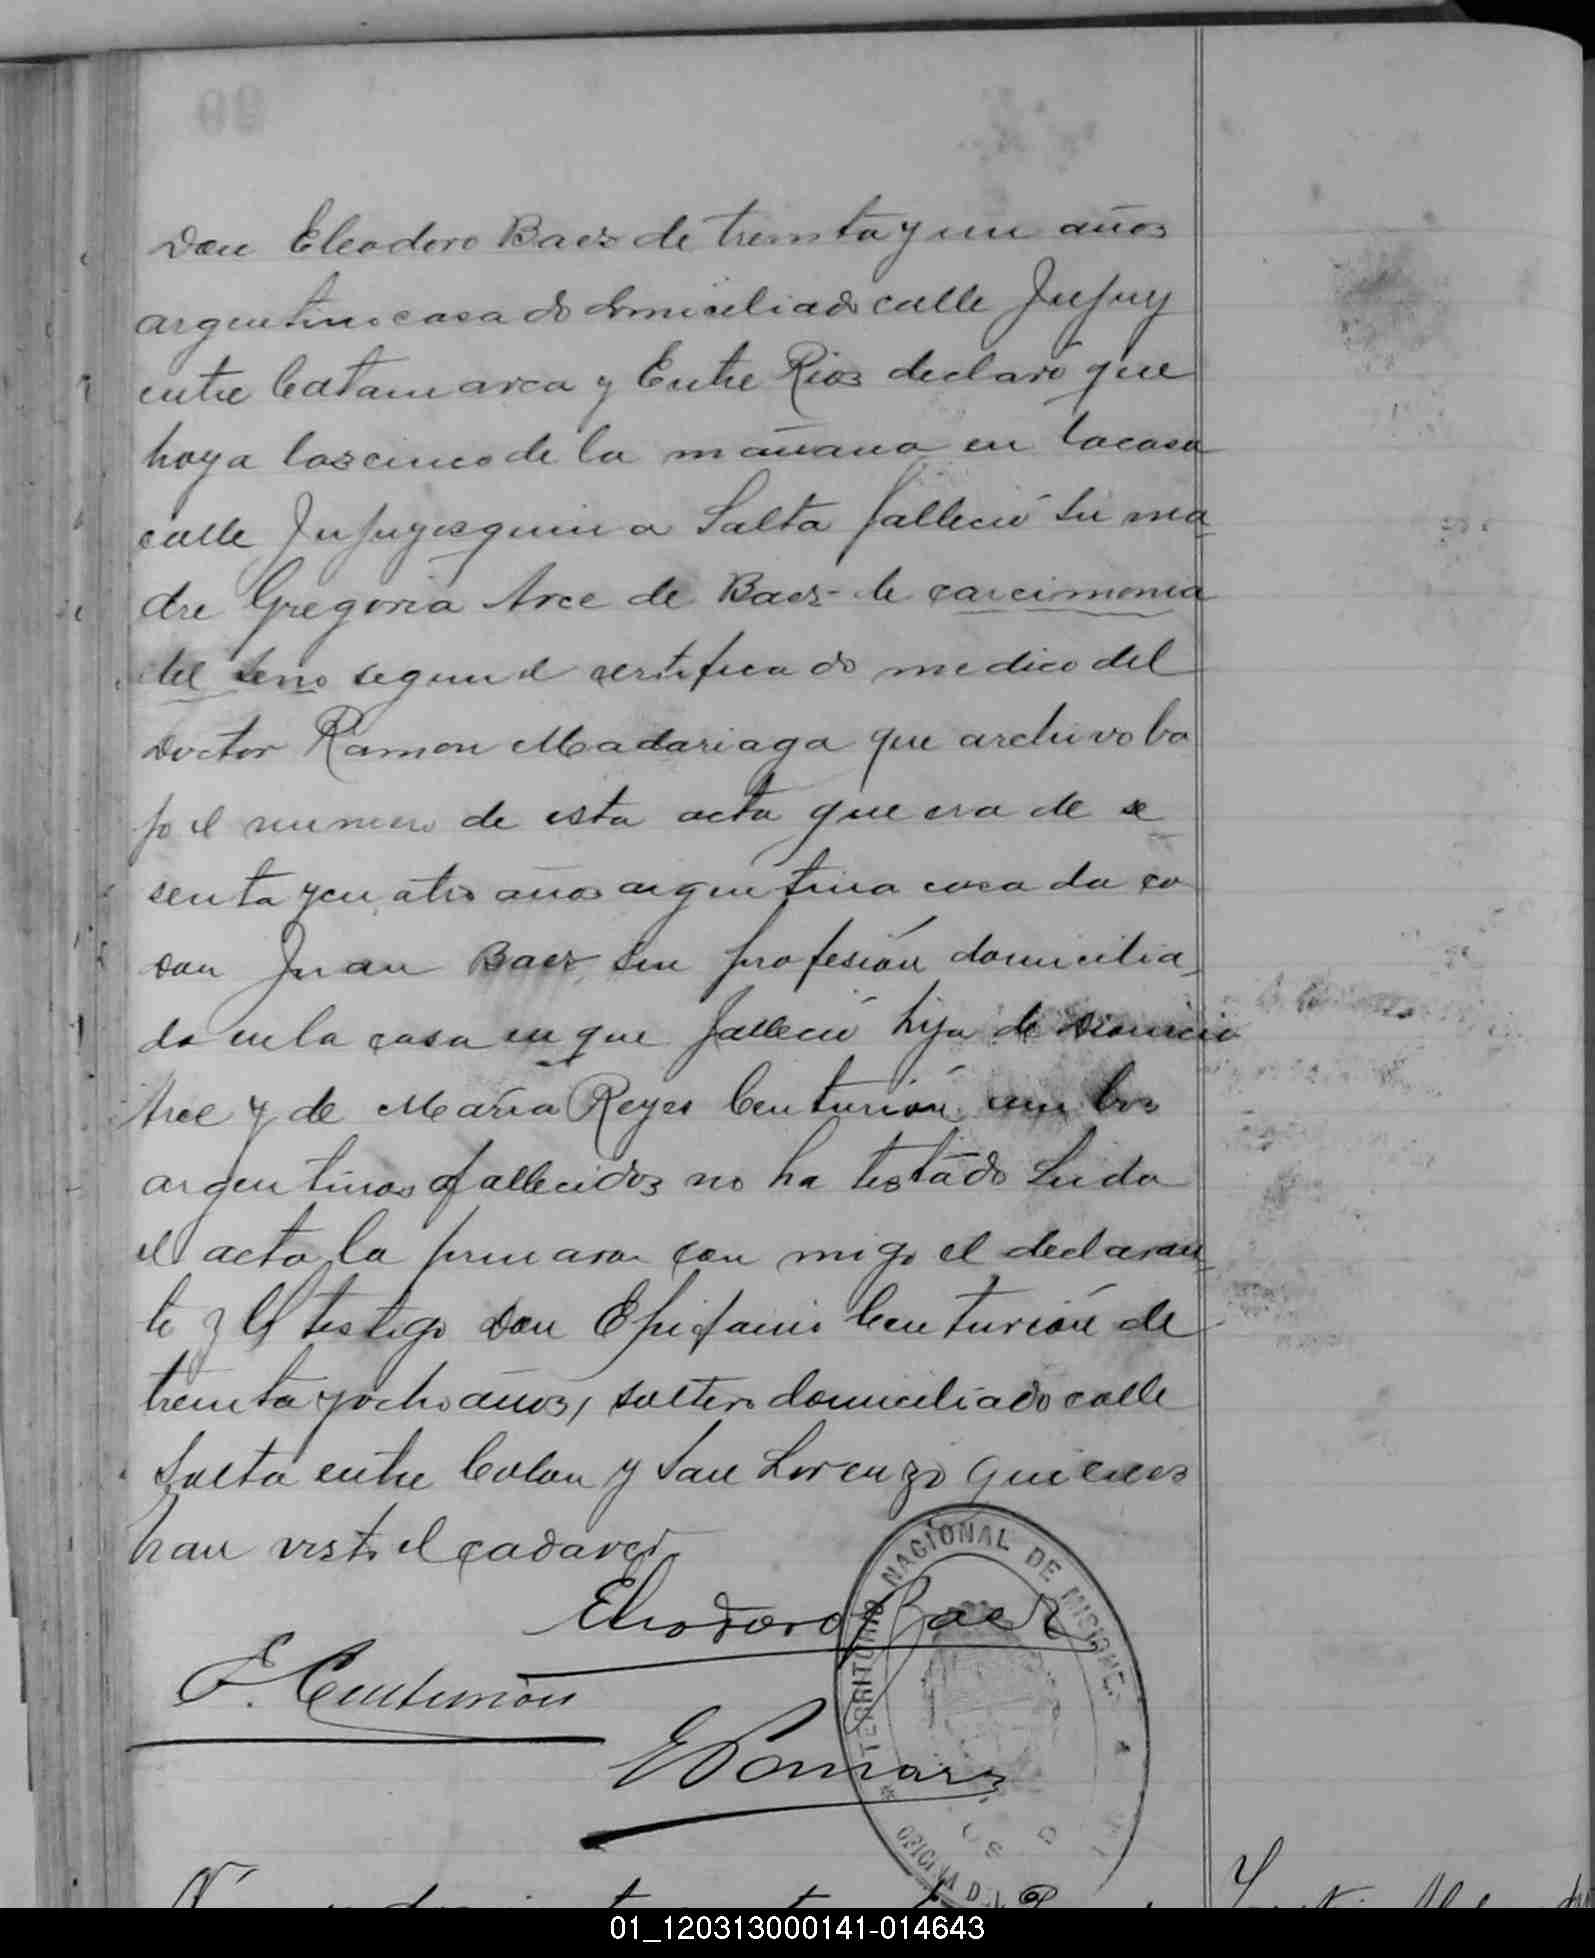 Don Eleodoro Baez de treinta y un años
argentino casado domiciliado calle Jujuy
entre Catamarca y Entre Rios declaró que
hoy a las cinco de la mañana en la casa
calle Jujuy esquina a Salta falleció su ma-
dre Gregoria Arce de Baez de carcimonia
del seno segun el certificado medico del
Doctor Ramon Madariaga que archivo ba
jo el numero de esta acta que era de se
senta y cuatro años argentina casada co
don Juan Baez sin profesión domicilia-
da en la casa en que falleció hija de Dionicio
Arce y de Maria Reyes Centurión ambos
argentinos fallecidos no ha testado Leida
el acta la firmaron con migo el declaran-
te y el testigo don Epifanio Centurión de
treinta y ocho años, soltero domiciliado calle
Salta entre Colon y San Lorenzo quienes
han visto el cadaver
Eliodoro Baez
E. Centurión
TERRITORIO NACIONAL DE MISIONES
OFICINA D
01_120313000141-014643